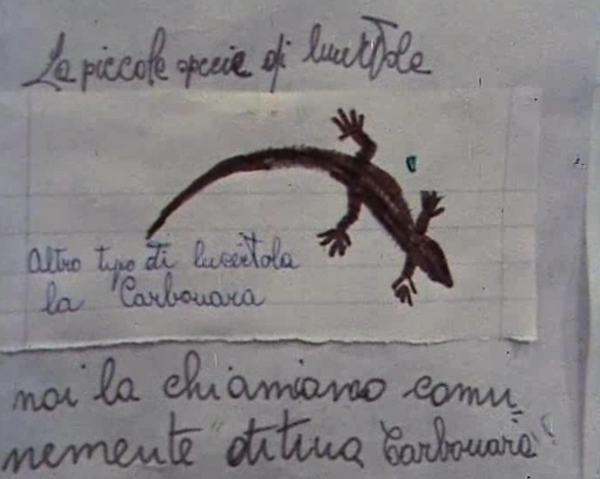 La piccole specie di lucertole
Altro tipo di lucertola
la Carbonara
noi la chiamiamo comu,
nemente "ditina Carbonara"